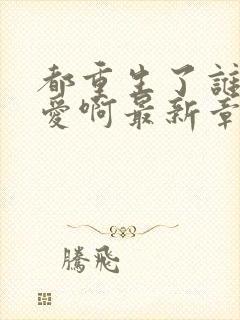 都重生了誰
愛啊最新章
騰飛